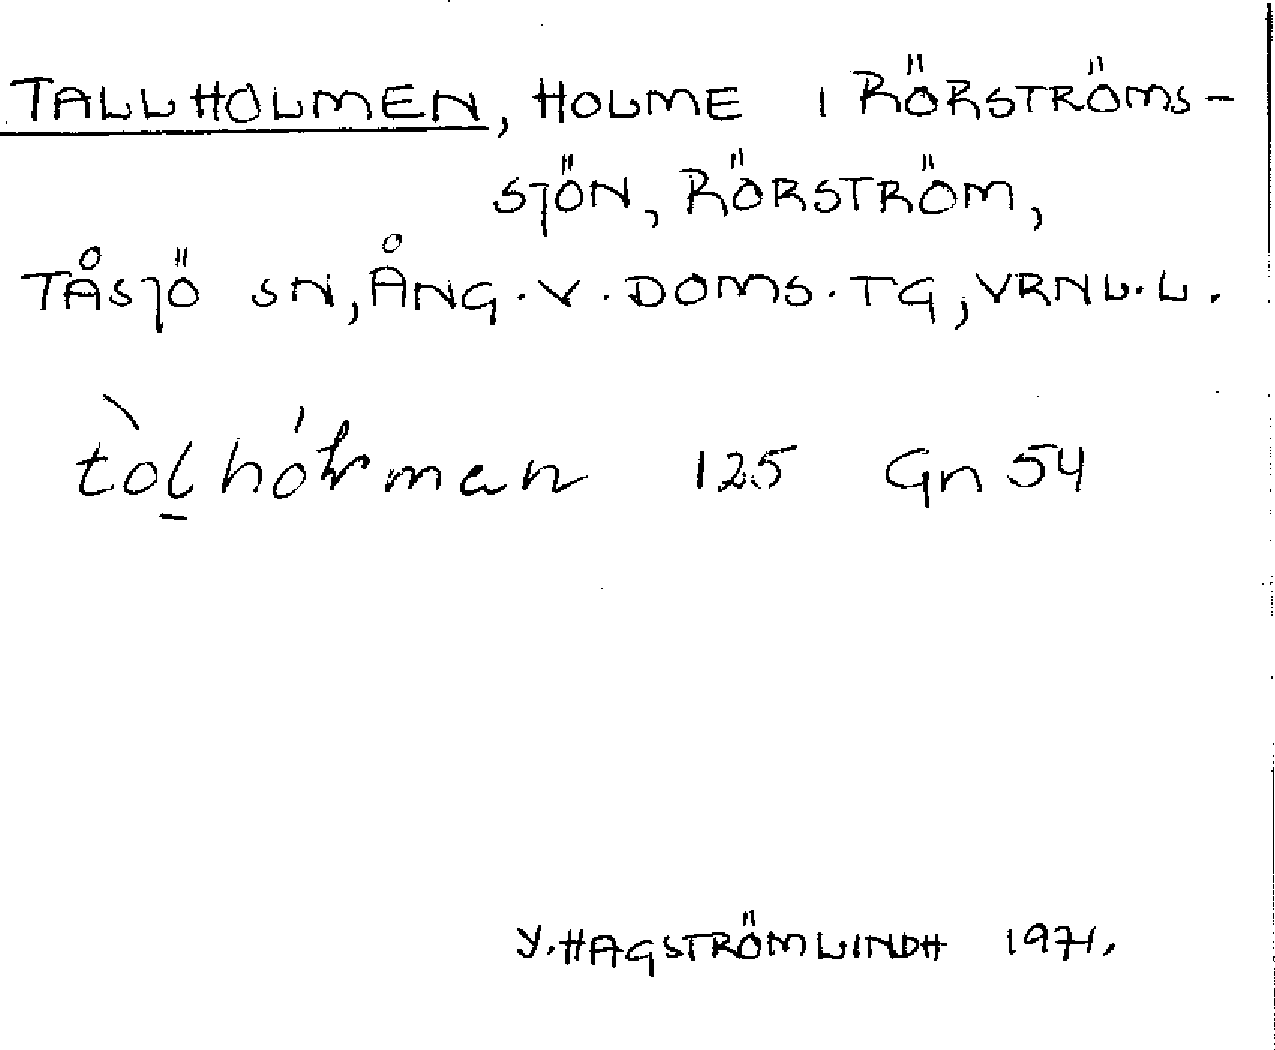 TALLHOLMEN, HOLME I RÖRSTRÖMS-
SJÖN, RÖRSTRÖM,
TÅSJÖ SN, ÅNG. V. DOMS. TG, VRNL.L.
125 Gn 54
Y. HAGSTRÖM LINDH 1971.